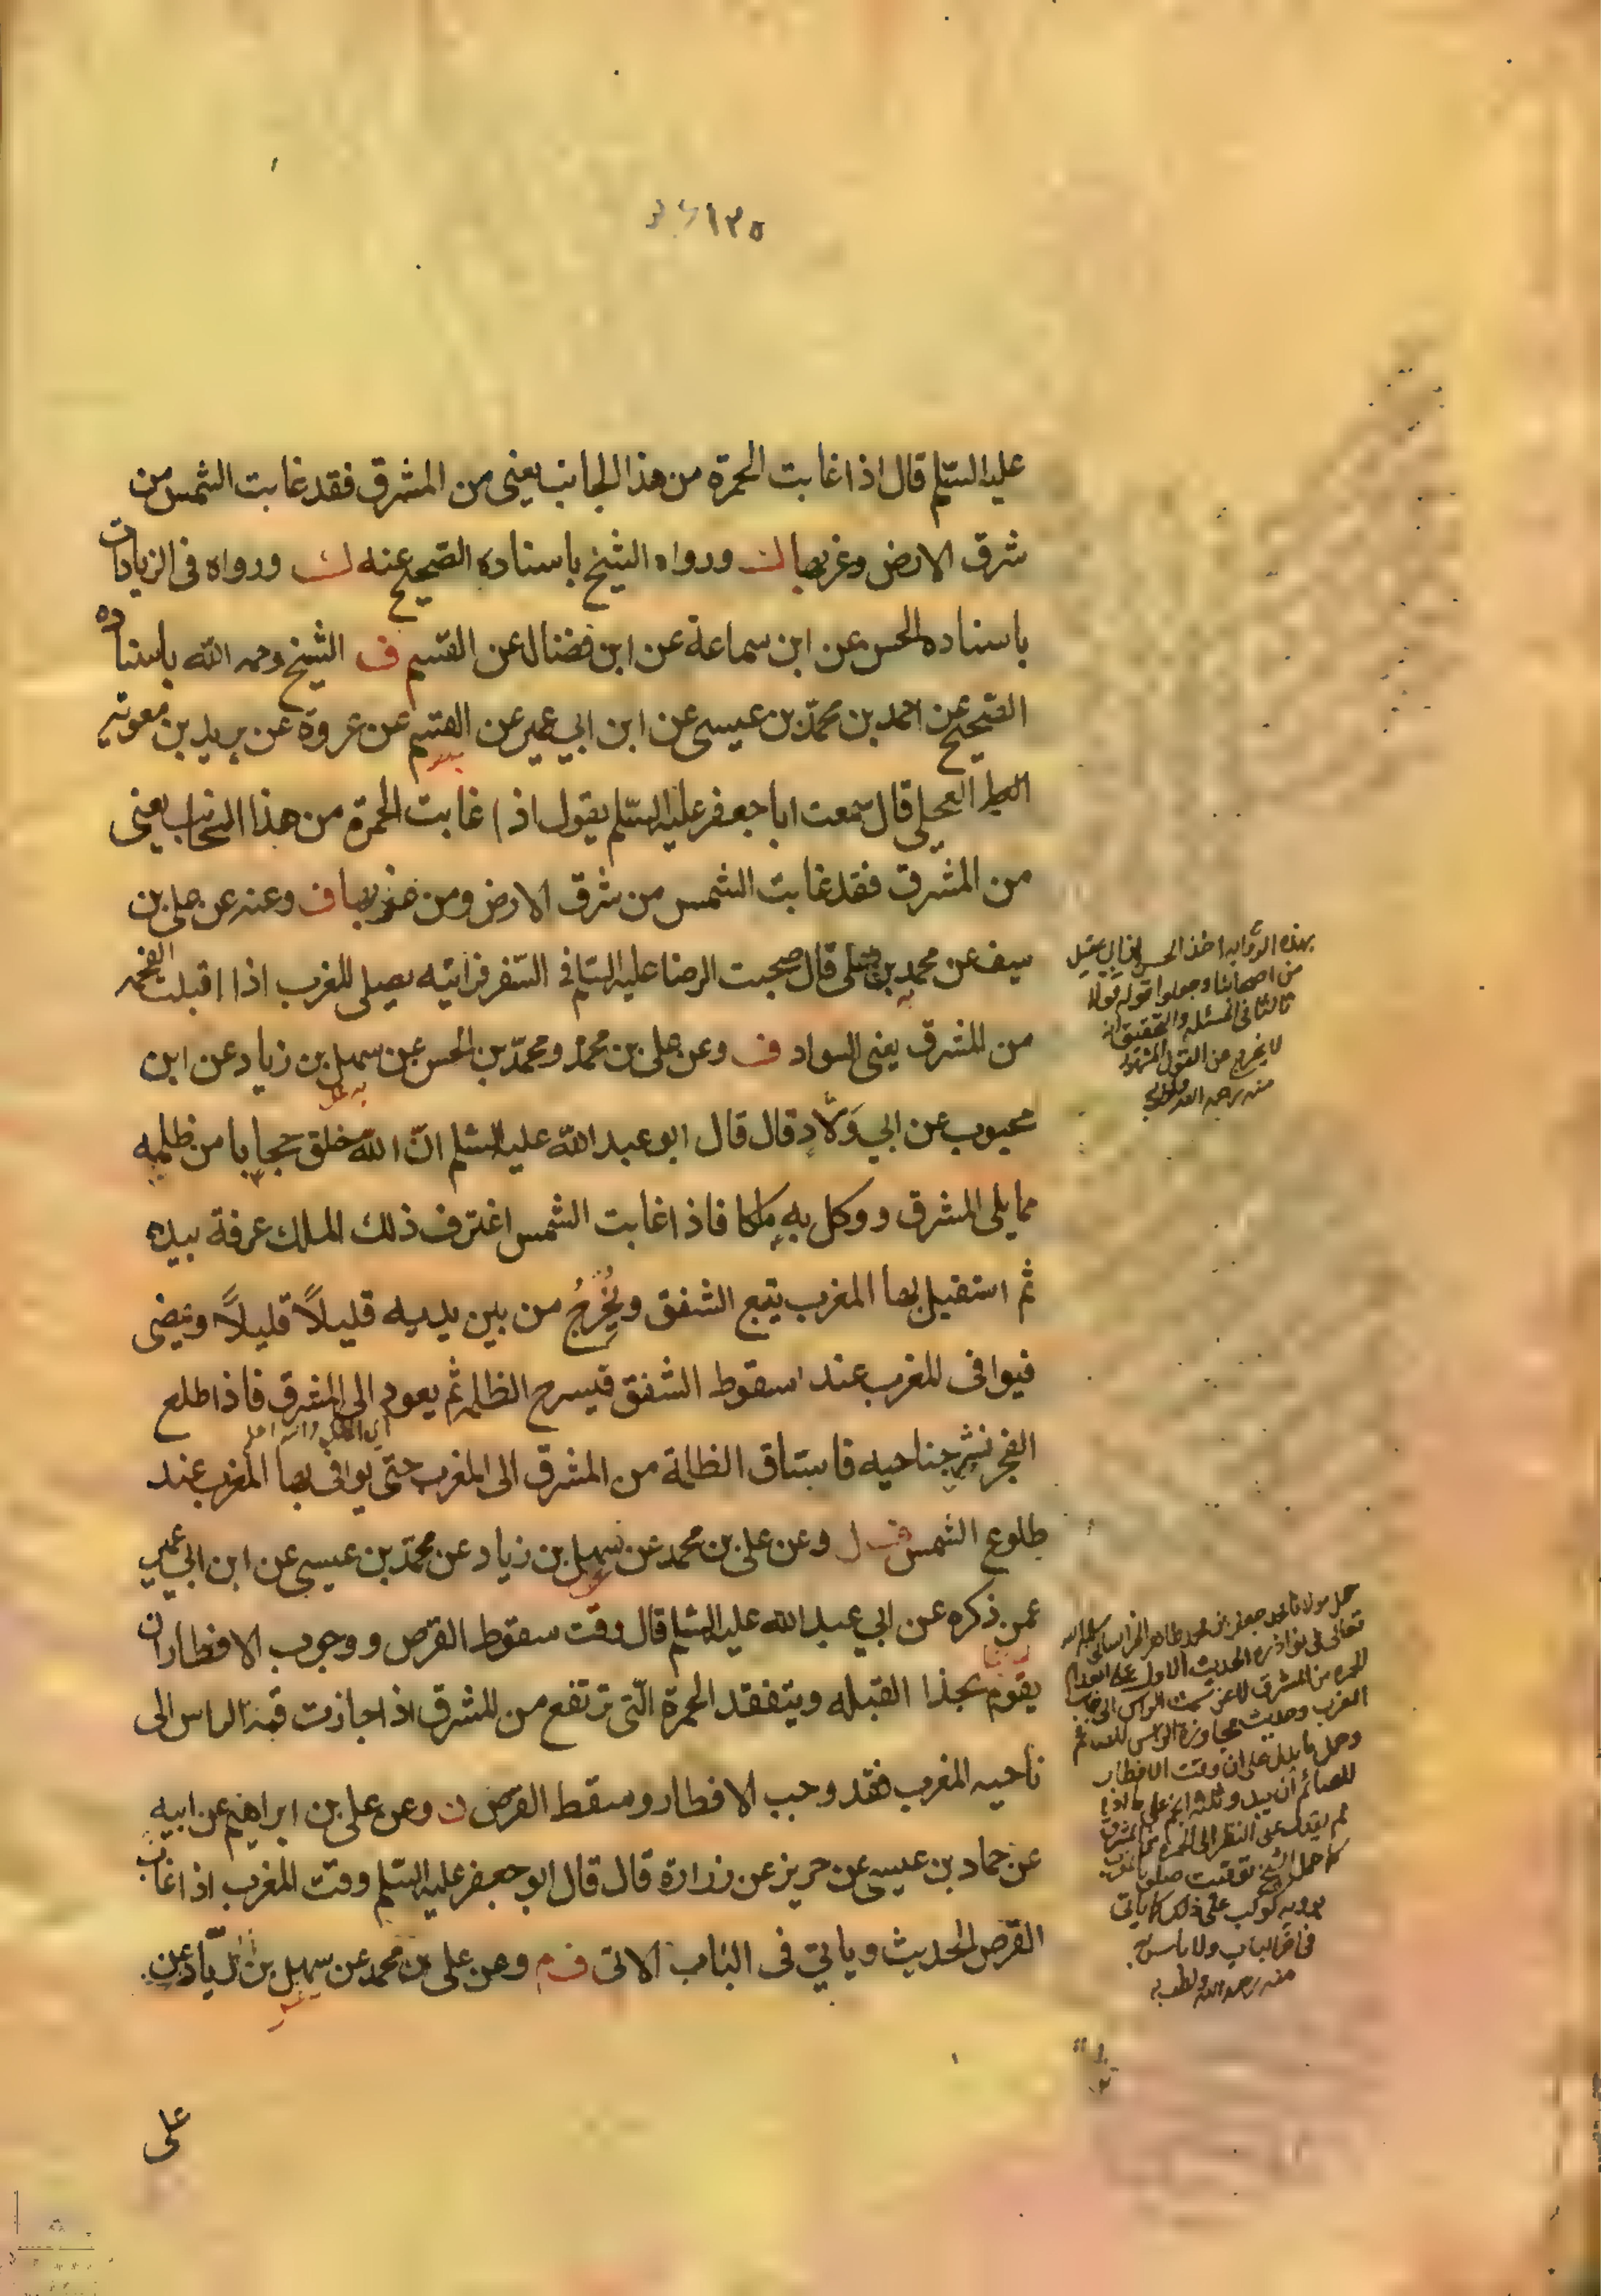 ١٢٥
عليه السّلم قال اذا غابت الحمرة من هذا الجانب يعنى من المشرق فقد غابت الشمس من
شرق الارض وغربها ورواه الشيخ باسناده الصّحيح عنه ورواه فى الزيادات
باسناده الحسن عن ابن سماعة عن ابن فضال عن القسم ف الشيخ رحمه الله باسناده
الصّحيح عن احمد بن محمّد بن عيسى عن ابن ابي عمير عن القسم عن عروة عن بريد بن معوية
العجلي قال سمعت ابا جعفر عليه السّلم يقول اذا غابت الحمرة من هذا الجانب يعنى
من المشرق فقد غابت الشمس من شرق الارض ومن غربها ف وعنه عن علي بن
سيف عن محمد بن علي قال صحبت الرضا عليه السّلم في السّفر فرأيته يصلى المغرب اذا اقبلت الفحمه
من المشرق يعنى السواد ف وعن على بن محمّد ومحمّد بن الحسن عن سهل بن زياد عن ابن
محبوب عن ابي وَلّاد قال قال ابو عبد الله عليه السّلم انّ الله خلق حجابا من ظلمه
مما يلى المشرق ووكل به ملكا فاذا غابت الشمس اغترف ذلك الملك غرفة بيده
ثم استقبل بها المغرب يتبع الشفق ويُخرِجُ من بين يديه قليلاً قليلاً ويمضى
فيوافى المغرب عند سقوط الشفق فيسرح الظلمه ثم يعود الى المشرق فاذا طلع
الفجر نشر جناحيه فاستاق الظلمة من المشرق الى المغرب حتّى يوافى بها المغرب عند
طلوع الشمس وعن على بن محمد عن سهل بن زياد عن محمّد بن عيسى عن ابن ابي عمير
عمن ذكره عن ابي عبد الله عليه السّلم قال وقت سقوط القرص ووجوب الافطار ان
يقوم بحذا القبله ويتفقد الحمرة الّتى ترتفع من المشرق اذا جازت قمة الراس الى
ناحيه المغرب فقد وجب الافطار وسقط القرص ن وعن على بن ابراهيم عن ابيه
عن حماد بن عيسى عن حريز عن زرارة قال قال ابو جعفر عليه السّلم وقت المغرب اذا غاب
القرص الحديث ويأتي فى الباب الاتى ف م وعن على بن محمد عن سهل بن زيّاد عن
على
بهذه الروايه اخذ الحسن بن ابي عقيل
من اصحابنا وجعلوا قوله قولا
ثالثا فى المسئله والتحقيق انه
لا يخرج عن القول المشهور
منه رحمه الله
حمل مولانا محمد جعفر بن محمد طاهر الخراسانى سلمه الله
تعالى فى نوادره الحديث الاول على
الحمره من المشرق لا عن سمت الراس الى جانب
المغرب وحديث مجاوزة الراس
وحمل ما يدل على ان وقت الافطار
للصائم ان يبدو ثلثة انجم على ما اذا
لم يقدر على النظر الى الحمره
كما حمل الشيخ توقيت صلوة المغرب
برويه كوكب على ذلك كما ياتى
فى اخر الباب ولا باس به
منه رحمه الله